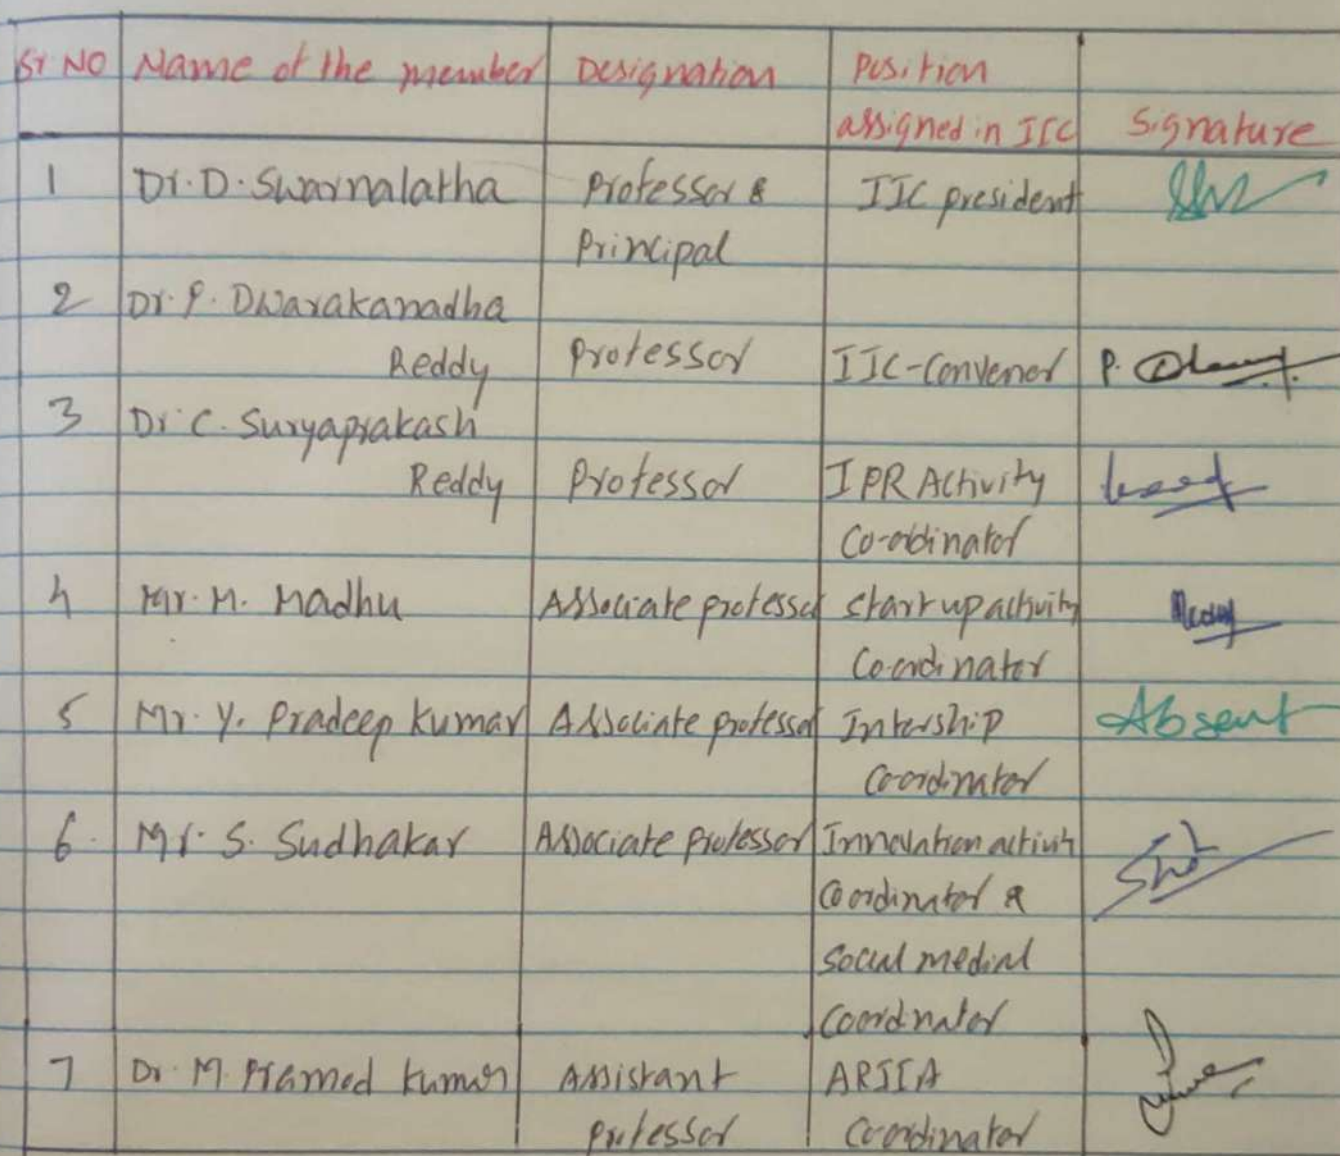 Sr NO Name of the member Designation Position
assigned in IIC Signature
1 Dr. D. Swarnalatha Professor & IIC president
Principal
2 Dr. P. Dwarakanadha
Reddy Professor IIC-Convener P.
3 Dr. C. Suryaprakash
Reddy Professor IPR Activity
Co-ordinator
4 Mr. M. Madhu Associate professor Startup activity
Co-ordinator
5 Mr. Y. Pradeep Kumar Associate professor Intership Absent
Co-ordinator
6. Mr. S. Sudhakar Associate professor Innovation activity
Coordinator &
Social medial
Coordinator
7 Dr. M. Pramod Kumar Assistant ARIIA
Professor Co-ordinator